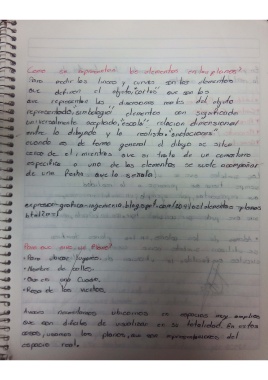 ¿Como se representan los elementos en los planos?
Para medir las lineas y curvas son los elementos
que definen el objeto, "cortes" que son los
que representan las dimensiones reales del objeto
representado, "simbologia" elementos con significado
universalmente aceptado, "escala" relación dimensional
entre lo dibujado y la realidad,
cuando es de forma general el dibujo se situa
cerca de el mientras que si trata de un comentario
especifico a uno de los elementos se suele acompañar
de una flecha que lo señala.
expresion-grafica-ingenieria.blogspot.com/2011/01/elementos-planos
html?m=1
¿Para que sirve un Plano?
• Para ubicar lugares.
• Nombre de calles.
A veces necesitamos ubicarnos en espacios muy amplios
que son dificiles de visualizar en su totalidad. En estos
casos, usamos los planos, que son representaciones del
espacio real.